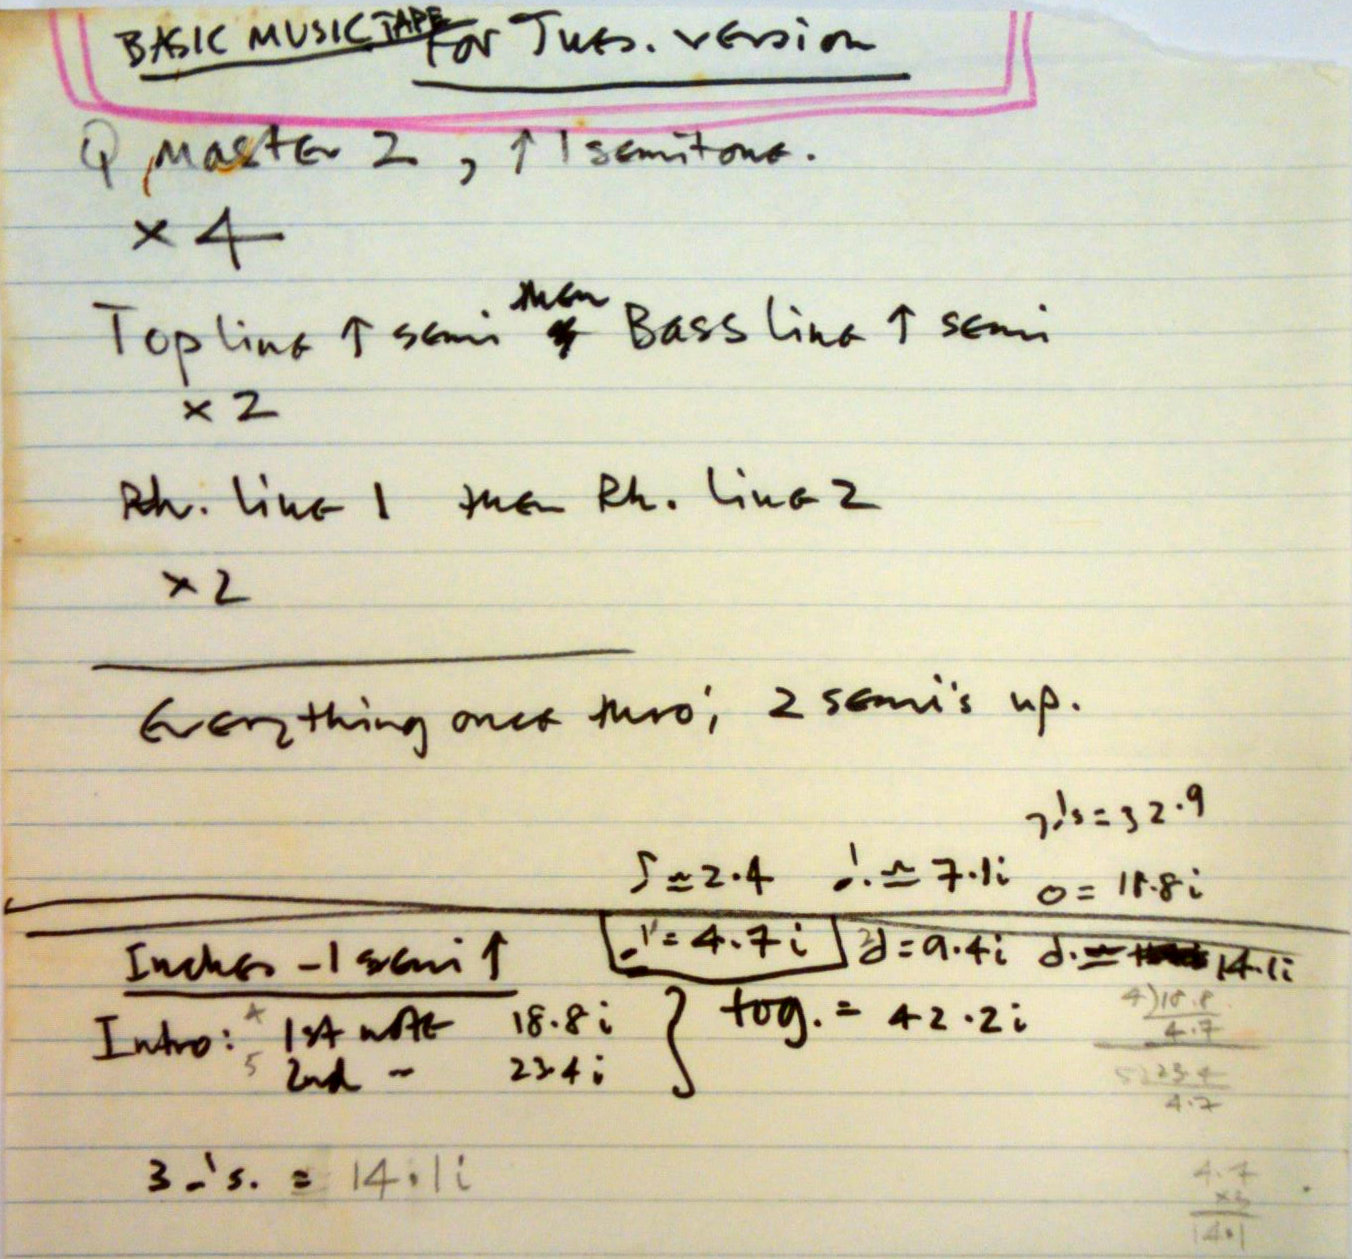 BASIC MUSIC TAPE for Tues. version
Q Master 2, ↑ 1 semitone.
× 4
Top line ↑ semi then Bass line ↑ semi
× 2
Rh. line 1 then Rh. line 2
× 2
Everything once thro', 2 semi's up.
7 ♩'s = 32.9
♪ ≃ 2.4 ♩. ≃ 7.1i o = 18.8i
Inches - 1 semi ↑ ♩ = 4.7i d = 9.4i d. = 14.1i
Intro: 4 1st note 18.8i } tog. = 42.2i
5 2nd ~ 23.4i
4)18.8
4.7
5)23.4
4.7
3 ♩'s. = 14.1i
4.7
×3
14.1